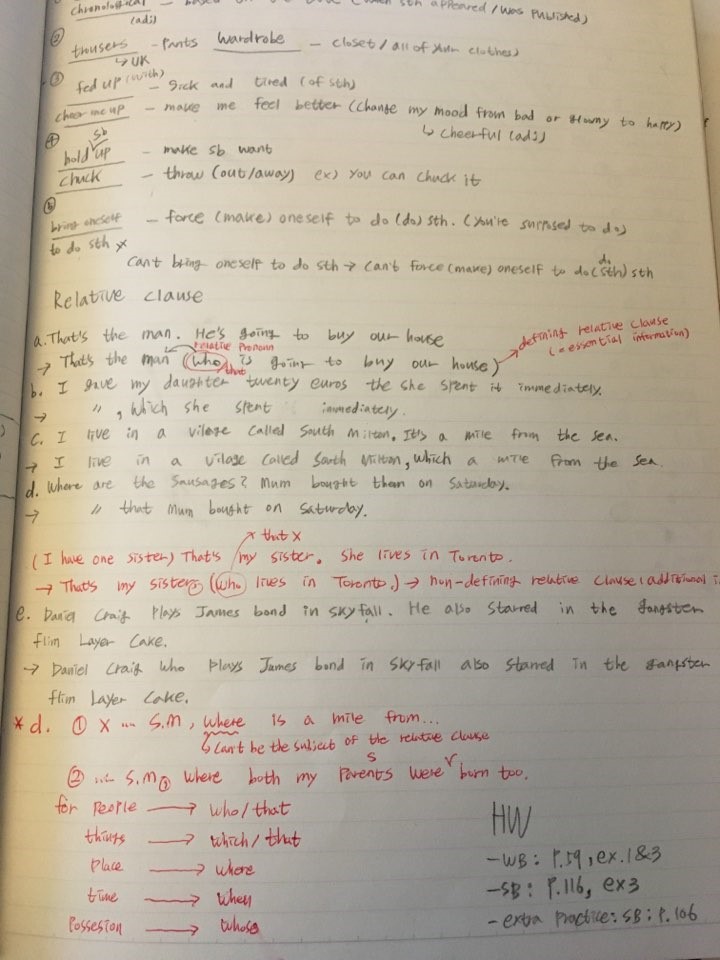 chronological - based on the (when sth appeared / was published)
(adj)
② trousers - pants wardrobe - closet / all of your clothes)
↳ UK
③ fed up (with) - sick and tired (of sth)
cheer me up - make me feel better (change my mood from bad or to happy)
↳ cheerful (adj)
④ sb
hold up - make sb want
chuck - throw (out/away) ex) you can chuck it
⑤
bring oneself - force (make) oneself to do (do) sth. (you're supposed to do)
to do sth x
can't bring oneself to do sth → can't force (make) oneself to do (sth) sth
do
Relative clause
a. That's the man. He's going to buy our house
relative pronoun
defining relative clause
(= essential information)
→ That's the man (who is going to buy our house)
that
b. I gave my daughter twenty euros the she spent it immediately.
→ 〃 , which she spent immediately.
c. I live in a vilage called South Milton. It's a mile from the sea.
→ I live in a vilage called South Milton, which a mile from the sea.
d. Where are the sausages? Mum bought them on Saturday.
→ 〃 that Mum bought on Saturday.
x that x
(I have one sister) That's my sister. She lives in Toronto.
→ That's my sister, (who lives in Toronto.) → non-defining relative clause (additional
e. Daniel Craig plays James bond in skyfall. He also starred in the gangster
flim Layer Cake.
→ Daniel Craig who plays James bond in skyfall also starred in the gangster
flim Layer Cake.
* d. ① X ... S.M, where is a mile from...
↳ can't be the subject of the relative clause
S V
② ... S.M, where both my parents were born too.
for people → who/that
things → which/that
place → where
time → when
Possesion → whose
HW
- WB: P.59, ex. 1&3
- SB: P.116, ex3
- extra practice: SB: P.106